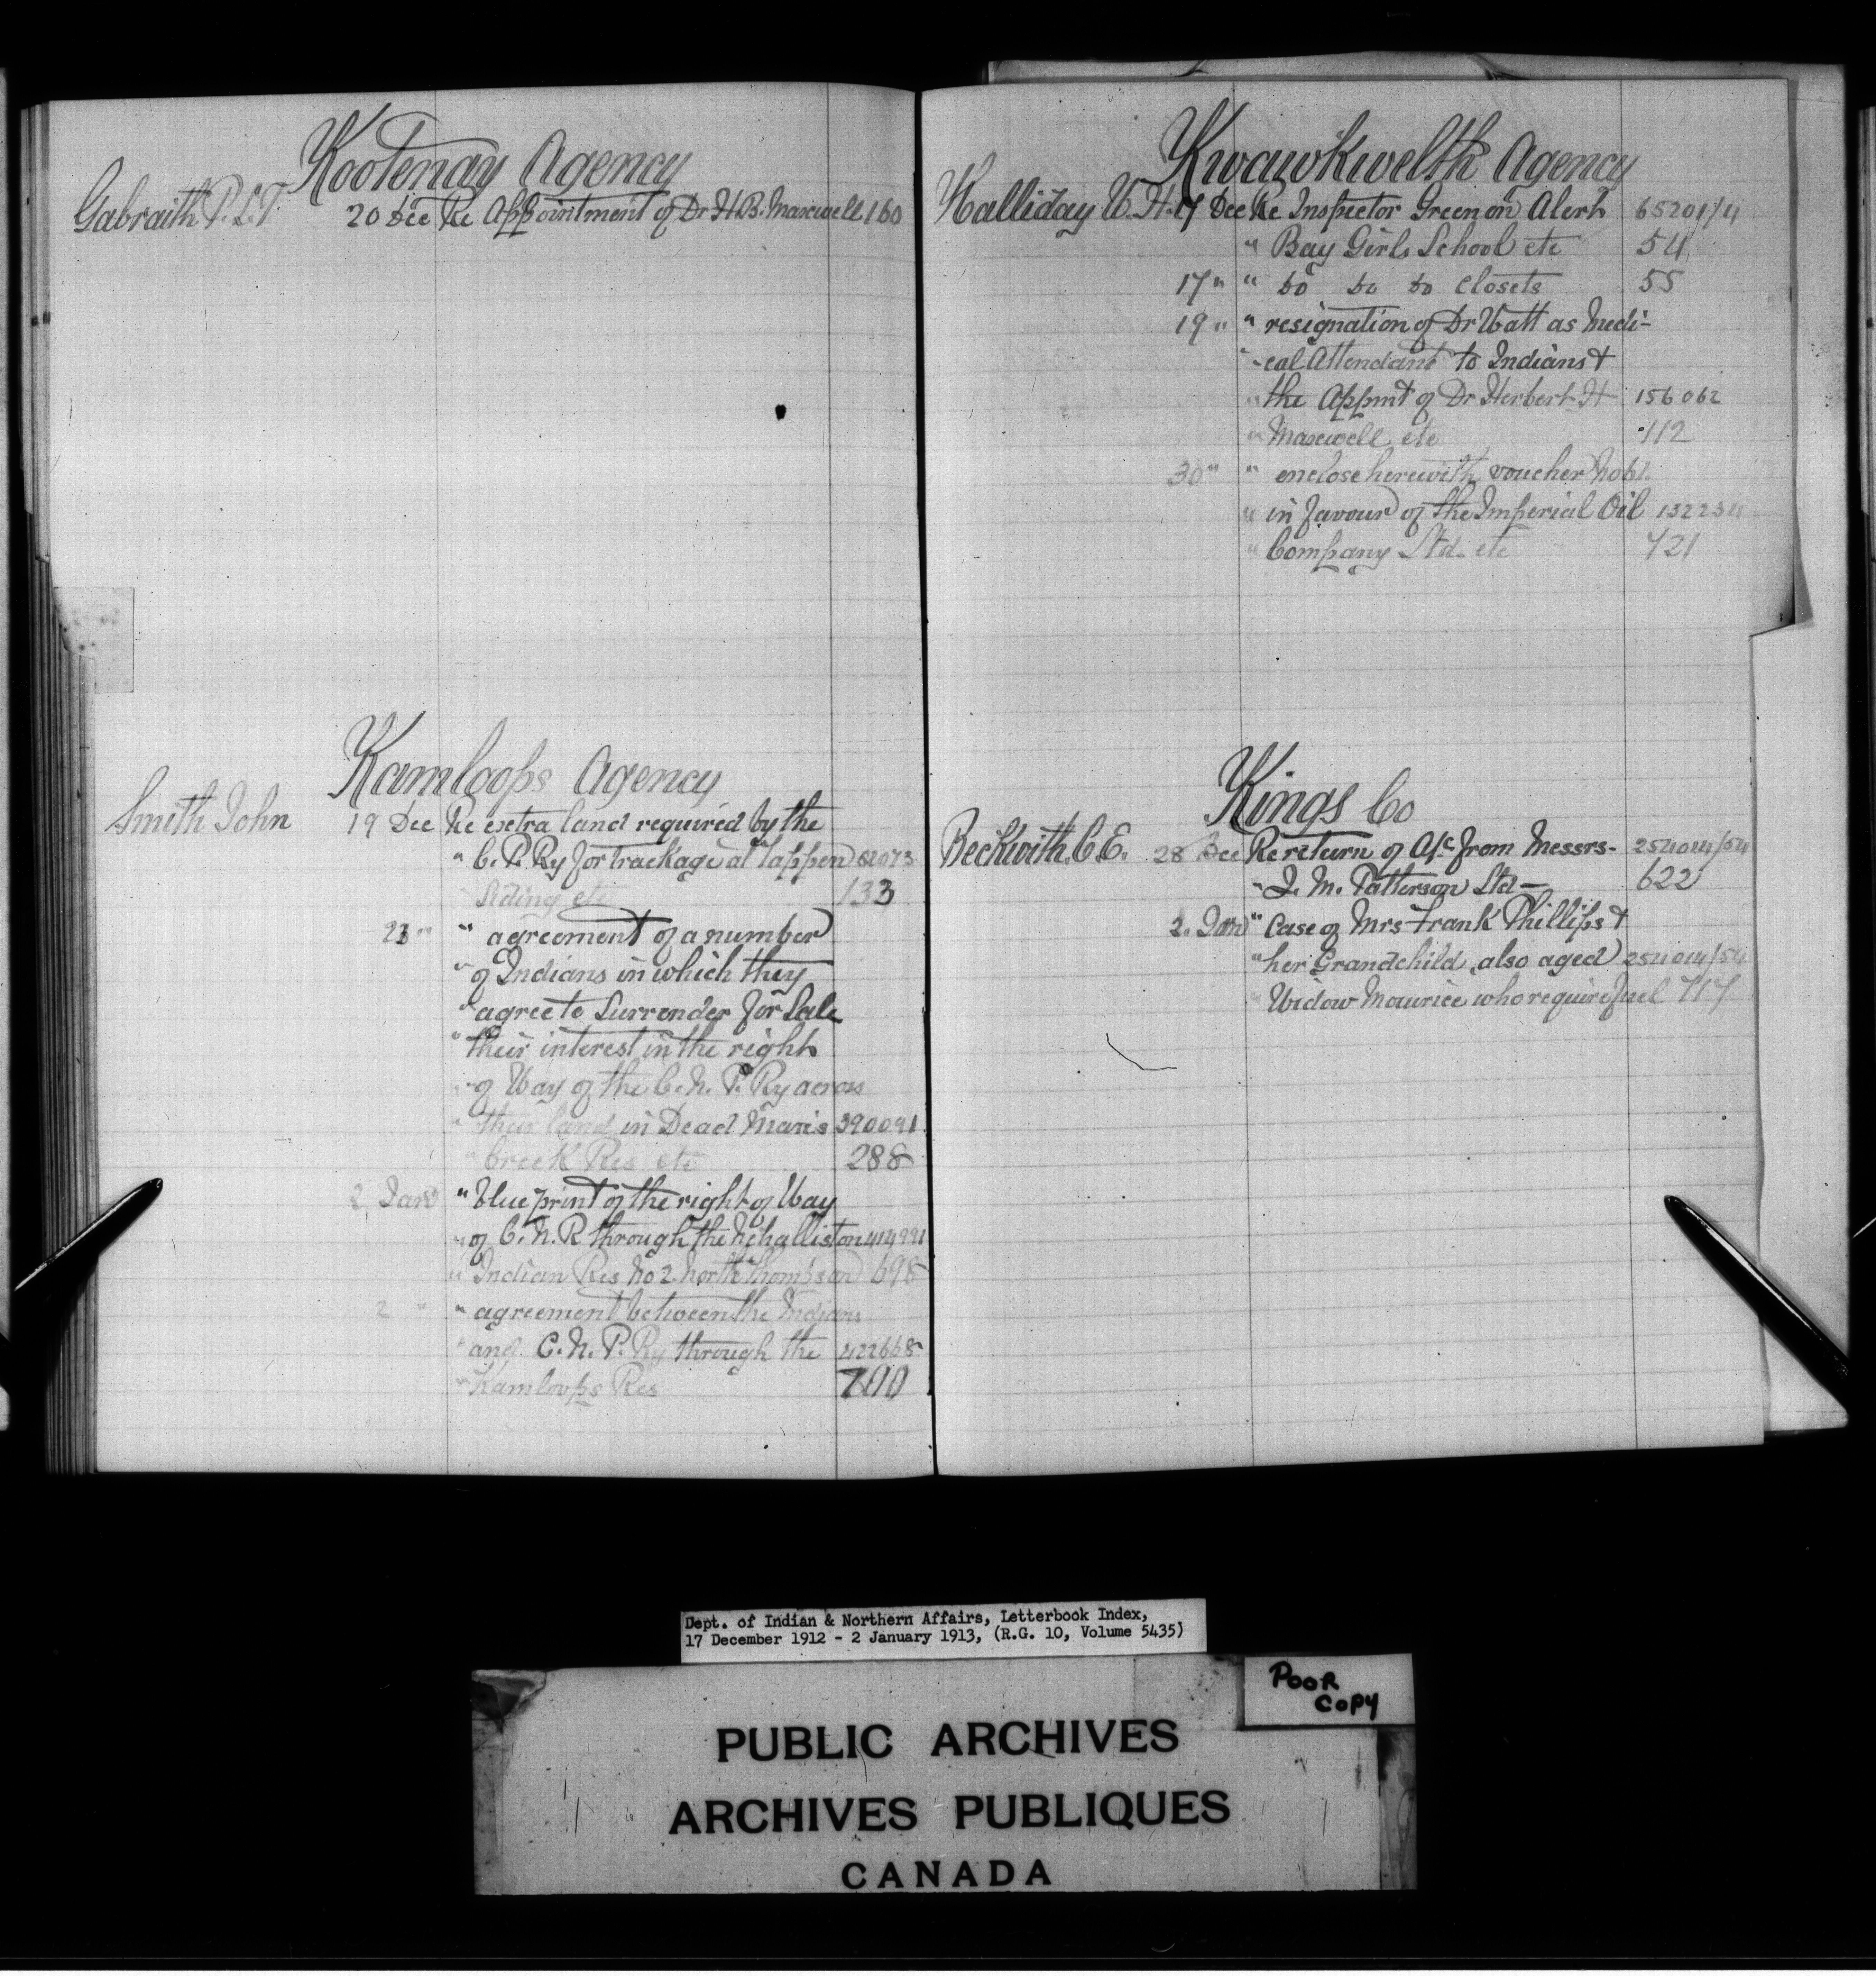 Kootenay Agency
Gabraith R.L.T. 20 Dec Re Appointment of Dr H.B. Maxwell 160
Kamloops Agency
Smith John 19 Dec Re extra land required by the
" C.P.Ry for trackage at Tappen 82073
" Siding etc 133
23 " " agreement of a number
" of Indians in which they
" agree to Surrender for Sale
" their interest in the right
" of Way of the C.N.P. Ry across
" their land in Dead Man's 390091
" Creek Res etc 288
2 Jan " blue print of the right of Way
" of C.N.R through the Nchalliston 414991
" Indian Res No 2 North Thompson 698
2 " " agreement between the Indians
" and C.N.P. Ry through the 422668
" Kamloops Res 700
Kwawkwelth Agency
Halliday W.H. 17 Dec Re Inspector Green on Alert 65201/4
" Bay Girls School etc 54
17 " " do do do closets 55
19 " " resignation of Dr Watt as Medi-
" -cal Attendant to Indians &
" the Appmt of Dr Herbert H 156062
" Maxwell etc 112
30 " " enclose herewith voucher No 61.
" in favour of the Imperial Oil 132234
" Company Ltd. etc 721
Kings Co
Beckwith. C.E. 28 Dec Re return of A/c from Messrs- 254014/54
" J. M. Patterson Ltd — 622
2. Jan " Case of Mrs Frank Phillips &
" her Grandchild, also aged 254014/54
" Widow Maurice who require fuel 717
Dept. of Indian & Northern Affairs, Letterbook Index,
17 December 1912 - 2 January 1913, (R.G. 10, Volume 5435)
POOR
COPY
PUBLIC ARCHIVES
ARCHIVES PUBLIQUES
CANADA